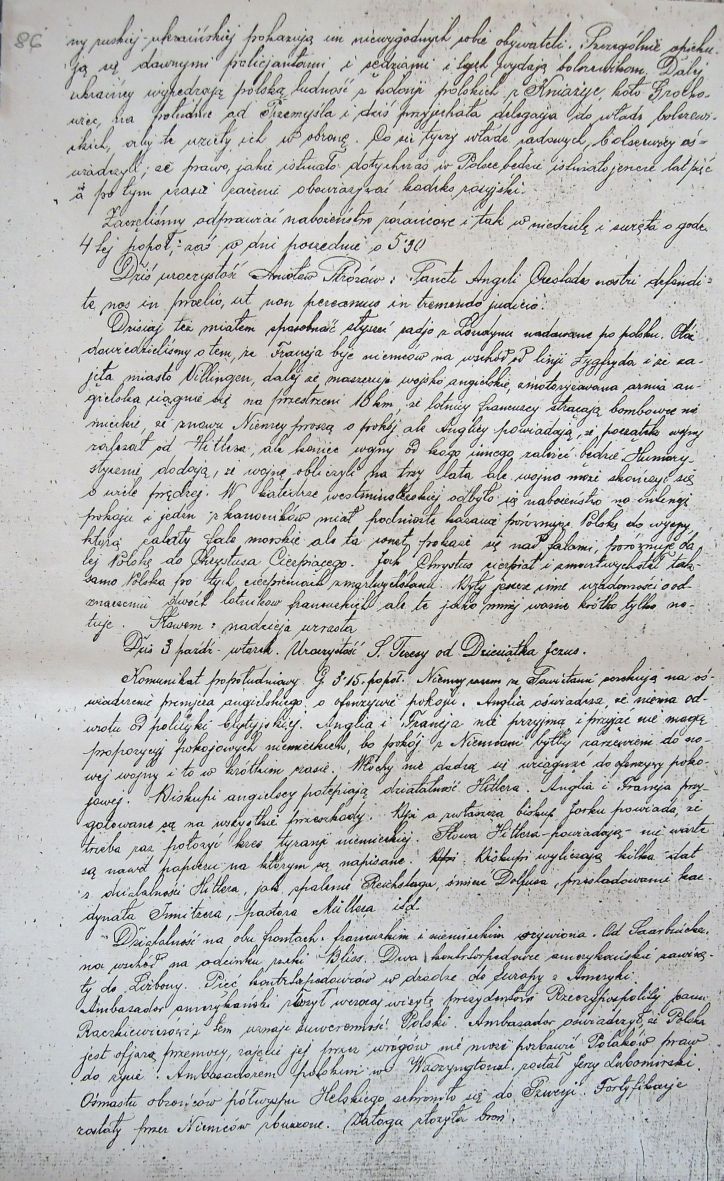 86
ny ruskiej-ukraińskiej pokazują im niewygodnych sobie obywateli. Szczególnie opieku-
ją się dawnymi policjantami i sędziami i tych wydają bolszewikom. Dalej
ukraińcy wypędzają polską ludność z kolonji polskich z Kniażyc koło Grocho-
wiec, na południe od Przemyśla i dziś przyjechała delegacja do władz bolszewi-
ckich, aby te wzięły ich w obronę. Co się tyczy władz sądowych, bolszewicy oś-
wiadczyli, że prawo, jakie istniało dotychczas w Polsce będzie istniało jeszcze lat pięć
a po tym czasie zacznie obowiązywać kodeks rosyjski.
Zaczęliśmy odprawiać nabożeństwo różańcowe i tak w niedzielę i święta o godz.
4tej popoł, zaś w dni powszednie o 5'30
Dziś uroczystość Aniołów Stróżów: Sancti Angeli Custodes nostri defendi-
te nos in proelio, ut non pereamus in tremendo judicio.
Dzisiaj też miałem sposobność słyszeć radjo z Londynu nadawane po polsku. Otóż
dowiedzieliśmy o tem, że Francja bije niemców na wschód od linji Zygfryda i że za-
jęła miasto Villingen, dalej że maszeruje wojsko angielskie, zmotoryzowana armia an-
gielska ciągnie się na przestrzeni 18 km, że lotnicy francuscy strącają bombowce nie-
mieckie, że znowu Niemcy proszą o pokój ale Anglicy powiadają, że początek wojny
zależał od Hitlera, ale koniec wojny od kogo innego zależeć będzie. Humory-
stycznie dodają, że wojnę obliczyli na trzy lata, ale wojna może skończyć się
o wiele prędzej. W katedrze westminsterskiej odbyło się nabożeństwo na intencję
pokoju i jeden z kanoników miał podniosłe kazanie porównując Polskę do wyspy,
którą zalały fale morskie ale ta wnet pokaże się nad falami, porównuje da-
lej Polskę do Chrystusa Cierpiącego. Jak Chrystus cierpiał i zmartwychstał tak
samo Polska po tych cierpieniach zmartwychstanie. Były jeszcze inne wiadomości o od-
znaczeniu dwóch lotników francuskich ale te jako mniej ważne krótko tylko no-
tuję. Słowem: nadzieja wzrasta
Dziś 3 paźdz- wtorek. Uroczystość S. Teresy od Dzieciątka Jezus.
Komunikat popołudniowy. G 3'15. popoł. Niemcy razem ze Sowietami czekają na oś-
wiadczenie premjera angielskiego, o ofenzywie pokoju. Anglia oświadcza, że niema od-
wrotu od polityki Anglia i Francja nie przyjmą i przyjąć nie mogą
propozycyj pokojowych niemieckich, bo pokój z Niemcami byłby zarzewiem do no-
wej wojny i to w krótkim czasie. Włochy nie dadzą się wciągnąć do ofenzywy poko-
jowej. Biskupi angielscy potępiają działalność Hitlera. Anglia i Francja przy-
gotowane są na wszystkie przeszkody. a zwłaszcza biskup Jorku powiada, że
trzeba raz położyć kres tyranji niemieckiej. Słowa Hitlera-powiadają-nie warte
są nawet papieru na którym są napisane. Biskupi wyliczają kilka dat
z działalności Hitlera, jak spalenie Reichstagu, śmierć Dolfusa, prześladowanie kar-
dynała Innitzera, pastora Müllera itd.
Działalność na obu frontach francuskim i niemieckim ożywiona. Od Saarbrücken
na wschód na odcinku rzeki Bliss. Dwa kontrtorpedowce amerykańskie zawinę-
ły do Lizbony. Pięć kontrtorpedowców w drodze do Europy z Ameryki.
Ambasador amerykański złożył wczoraj wizytę prezydentowi Rzeczypospolitej panu
Raczkiewiczowi, tem uznaje suwerenność Polski. Ambasador oświadczył, że Polska
jest ofiarą przemocy, zajęcie jej przez wrogów nie może pozbawić Polaków praw
do życia. Ambasadorem polskim w Waszyngtonie został Jerzy Lubomirski
Ośmastu obrońców półwyspu Helskiego schroniło się do Szwecji. Fortyfikacje
zostały przez Niemców zburzone. Załoga złożyła broń.